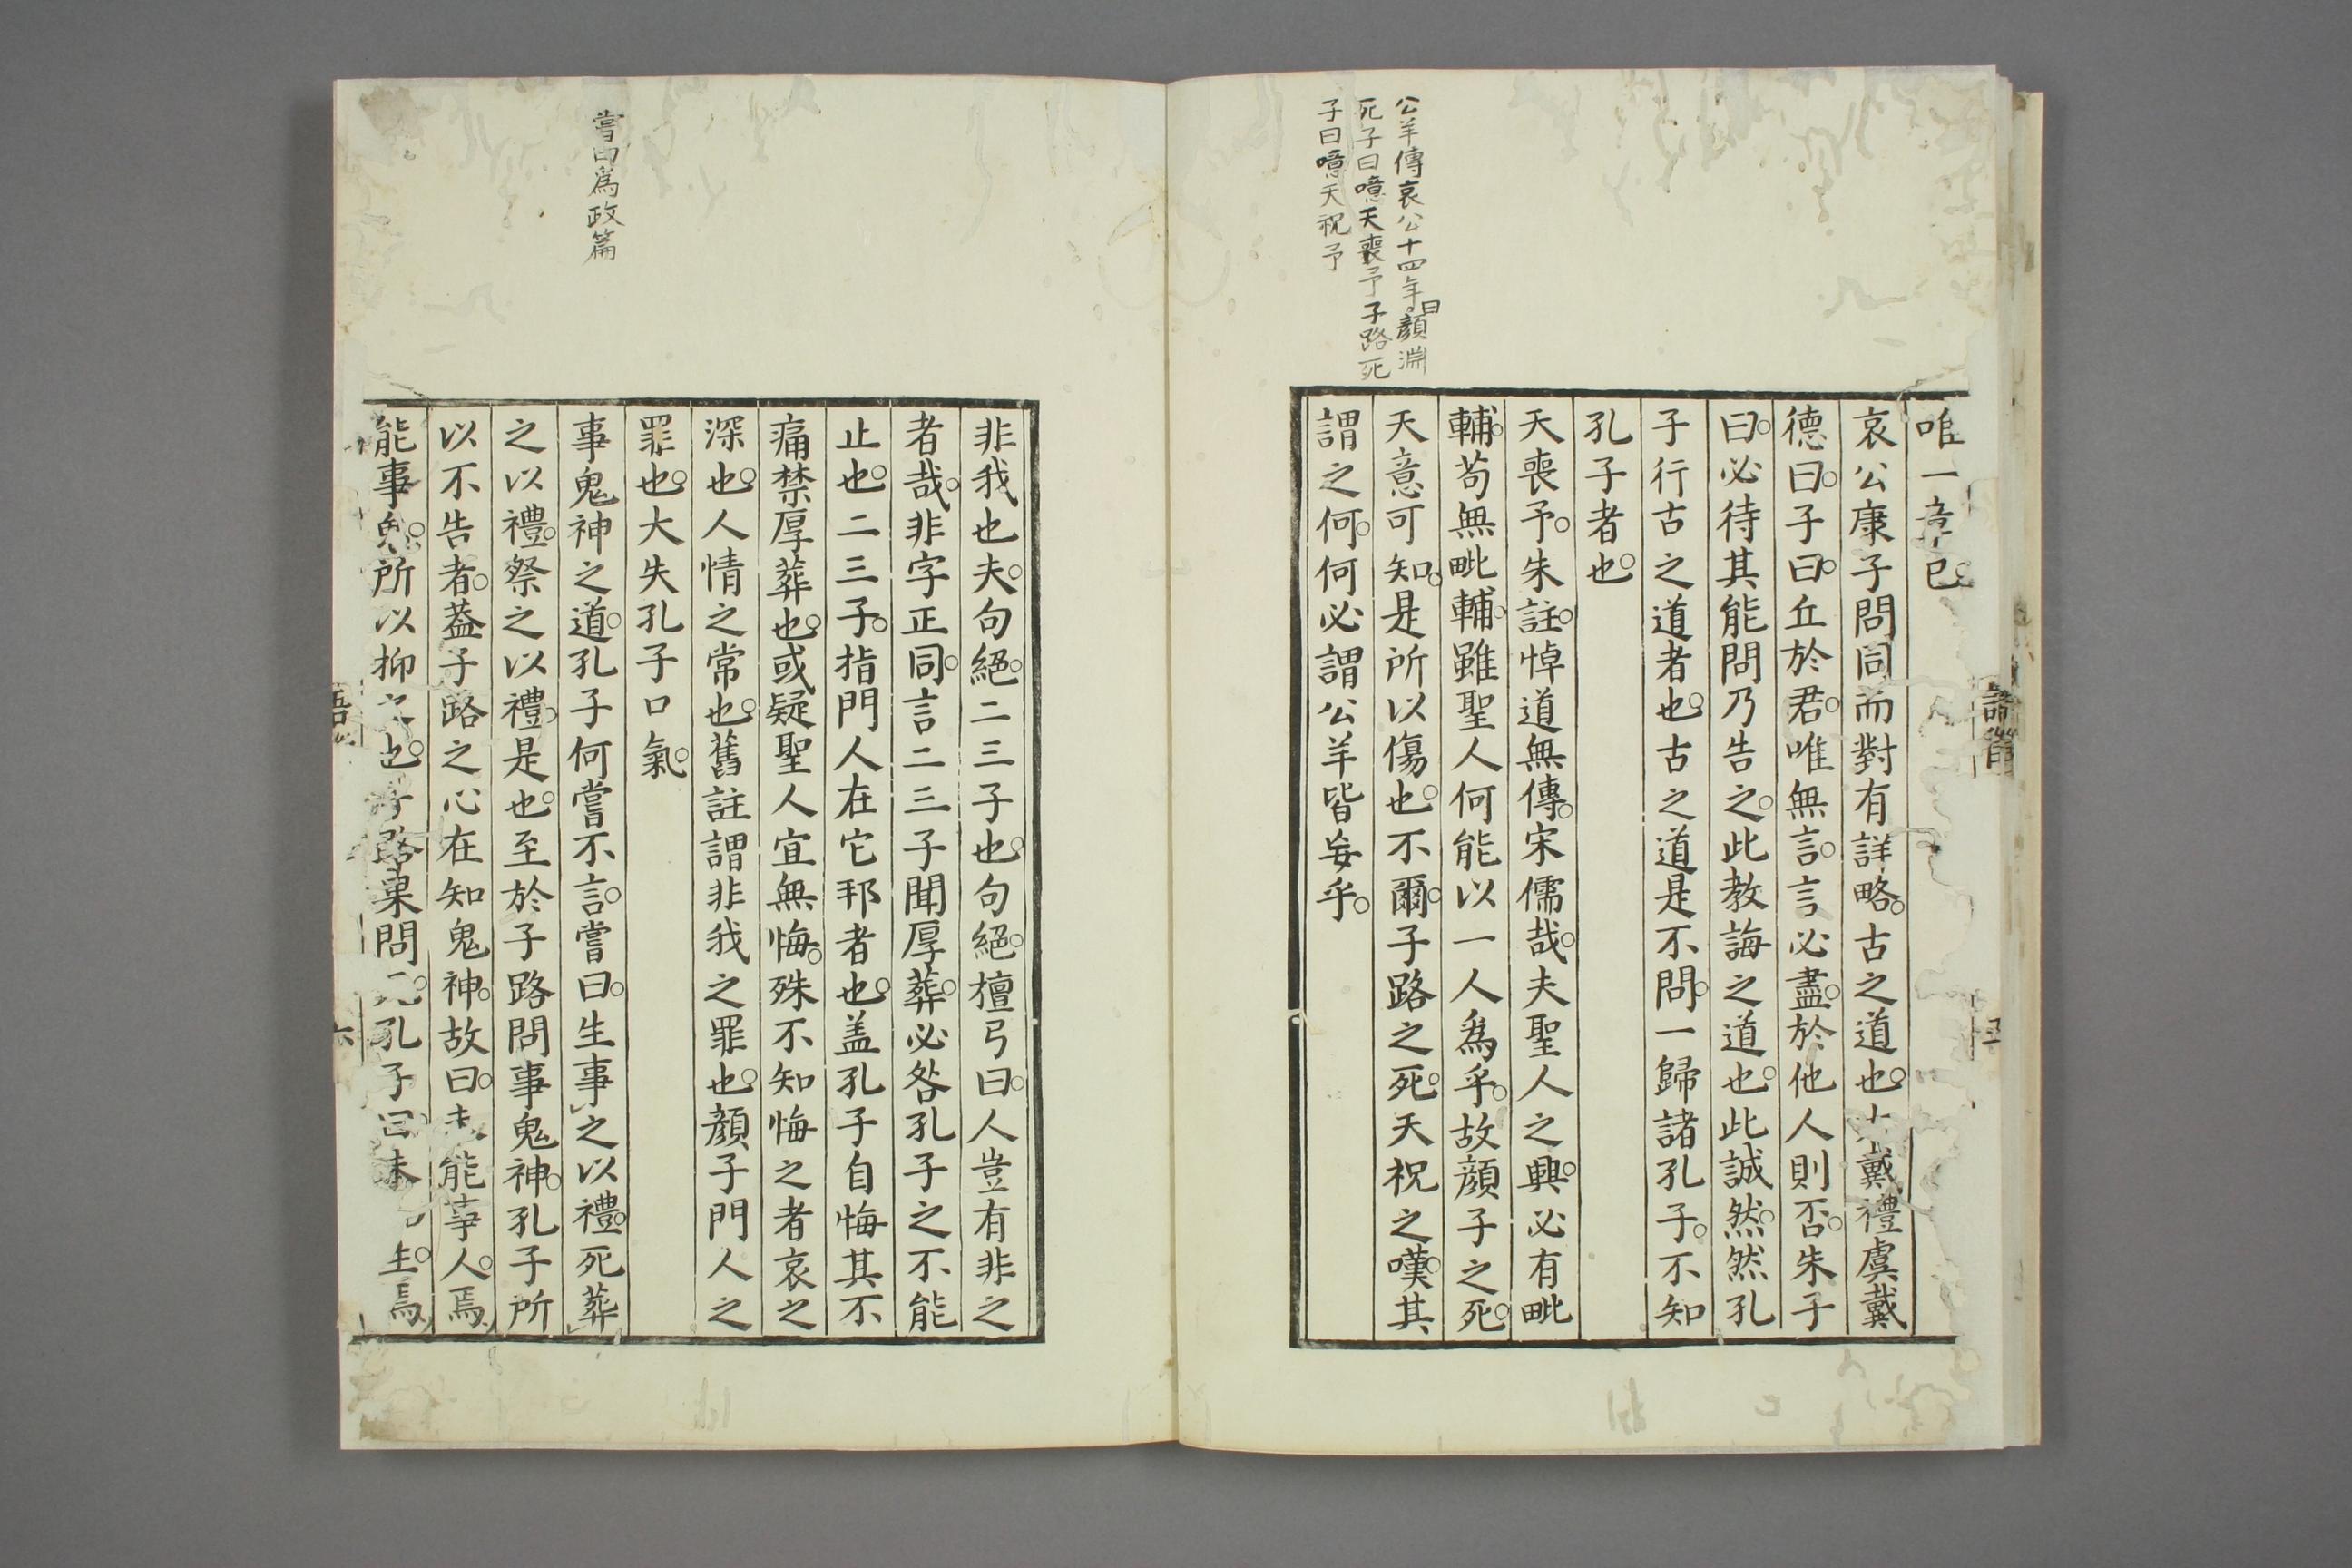 公羊傳哀公十四年曰顔淵
死子曰噫天喪予子路死
子曰噫天祝予
唯一章已
哀公康子問同而對有詳略。古之道也。大戴禮虞戴
德曰。子曰。丘於君。唯無言。言必盡。於他人則否。朱子
曰。必待其能問乃告之。此教誨之道也。此誠然。然孔
子行古之道者也。古之道是不問。一歸諸孔子。不知
孔子者也。
天喪予。朱註。悼道無傳。宋儒哉。夫聖人之興。必有毗
輔。苟無毗輔。雖聖人何能以一人為乎。故顔子之死。
天意可知。是所以傷也。不爾。子路之死。天祝之嘆。其
謂之何。何必謂公羊皆妄乎。
嘗曰爲政篇
非我也夫。句絕。二三子也。句絕。檀弓曰。人豈有非之
者哉。非字正同。言二三子聞厚葬。必咎孔子之不能
止也。二三子。指門人在它邦者也。盖孔子自悔其不
痛禁厚葬也。或疑聖人宜無悔。殊不知悔之者哀之
深也。人情之常也。舊註謂非我之罪也。顔子門人之
罪也。大失孔子口氣。
事鬼神之道。孔子何嘗不言。嘗曰。生事之以禮。死葬
之以禮。祭之以禮。是也。至於子路問事鬼神。孔子所
以不告者。葢子路之心在知鬼神。故曰。未能事人。焉
能事鬼。所以抑之也。子路果問死。孔子曰。未知生。焉